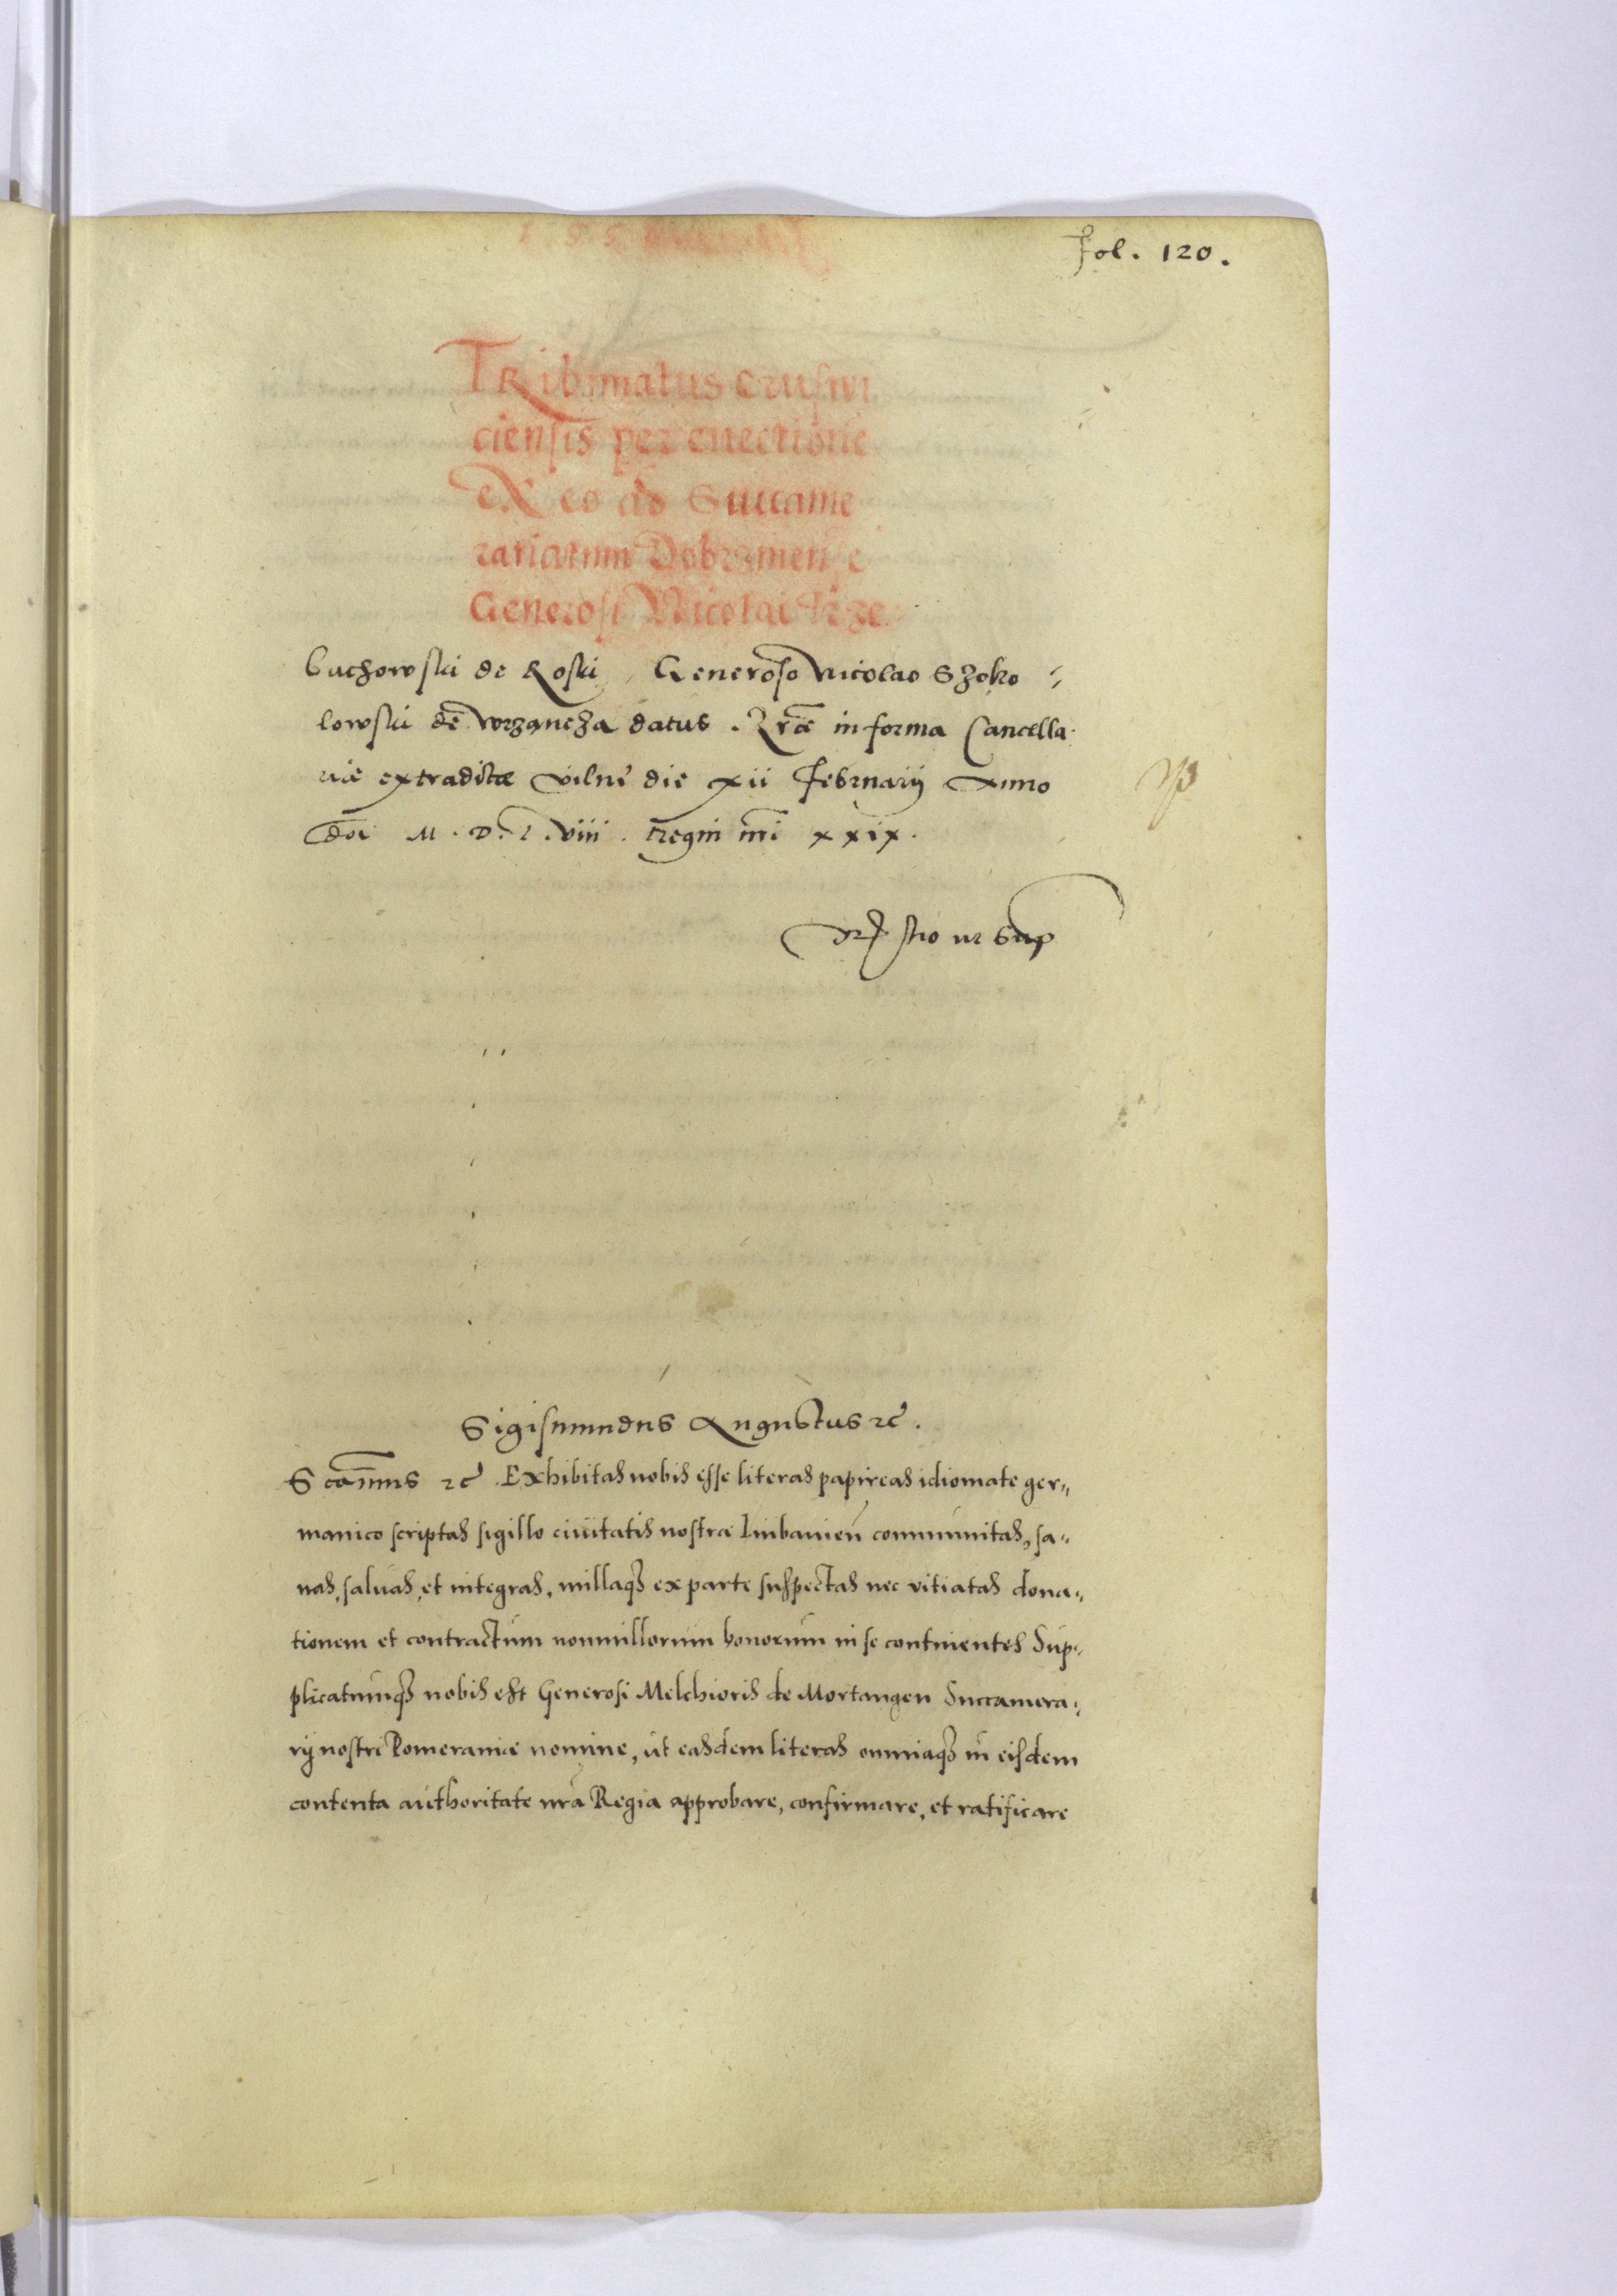 fol. 120.
Tribunatus Crusvi
ciensis per euectione
ex eo ad Succame
rariatum Dobrzinense
Generosi Nicolai Krze
Cuchowski de Roski, Generoso Nicolao Szoko
lowski de Wrzancza datus. Lrae in forma Cancella
riae extraditae Vilnae die xii Februarij Anno
Dni M.D.L.viii. Regni nri xxix.
ut sup
Sigismundus Augustus etc.
S canus etc. Exhibitas nobis esse literas papireas idiomate ger„
manico scriptas sigillo ciuitatis nostrae Lubauien communitas, sa„
nas, saluas, et integras, nullaqз ex parte suspectas nec vitiatas dona„
tionem et contractum nonnullorum bonorum in se continentes Sup„
plicatumqз nobis est Generosi Melchioris de Mortangen Succamera„
rij nostri Pomeraniae nomine, ut easdem literas omniaqз in eisdem
contenta authoritate nra Regia approbare, confirmare, et ratificare